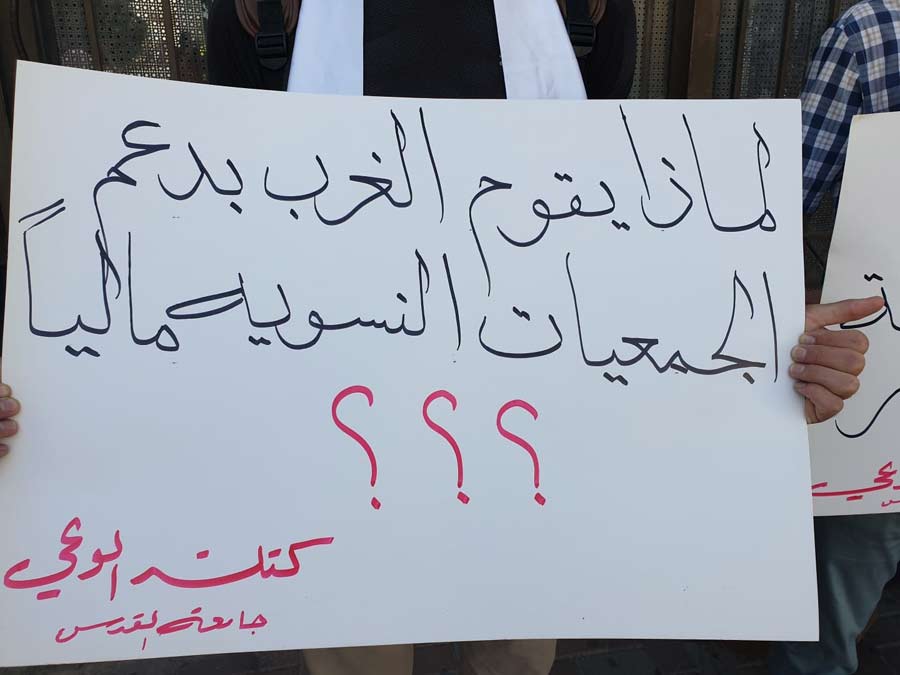 لماذا يقوم الغرب بدعم
الجمعيات النسويه مالياً
؟؟؟
كتلة الوعي
جامعة القدس